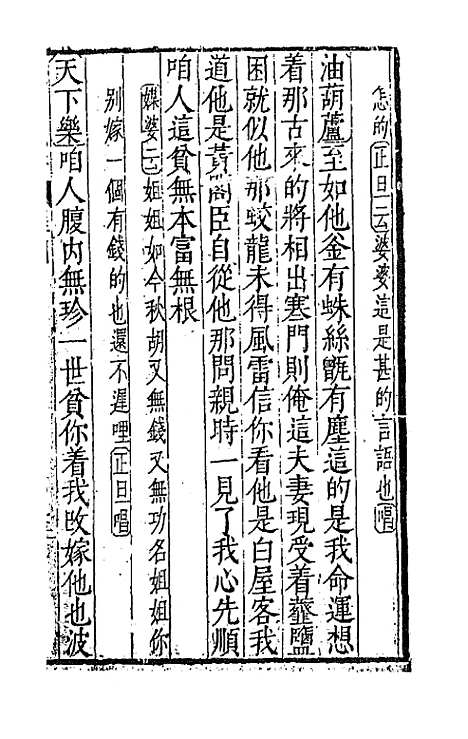 怎的正旦云婆婆這是甚的言語也唱
油葫蘆至如他釜有蛛絲甑有塵這的是我命運想
着那古來的將相出寒門則俺這夫妻現受着虀鹽
困就似他那蛟龍未得風雷信你看他是白屋客我
道他是黃閣臣自從他那問親時一見了我心先順
咱人這貧無本富無根
媒婆云姐姐如今秋胡又無錢又無功名姐姐你
別嫁一個有錢的也還不遲哩正旦唱
天下樂咱人腹内無珍一世貧你着我改嫁他也波